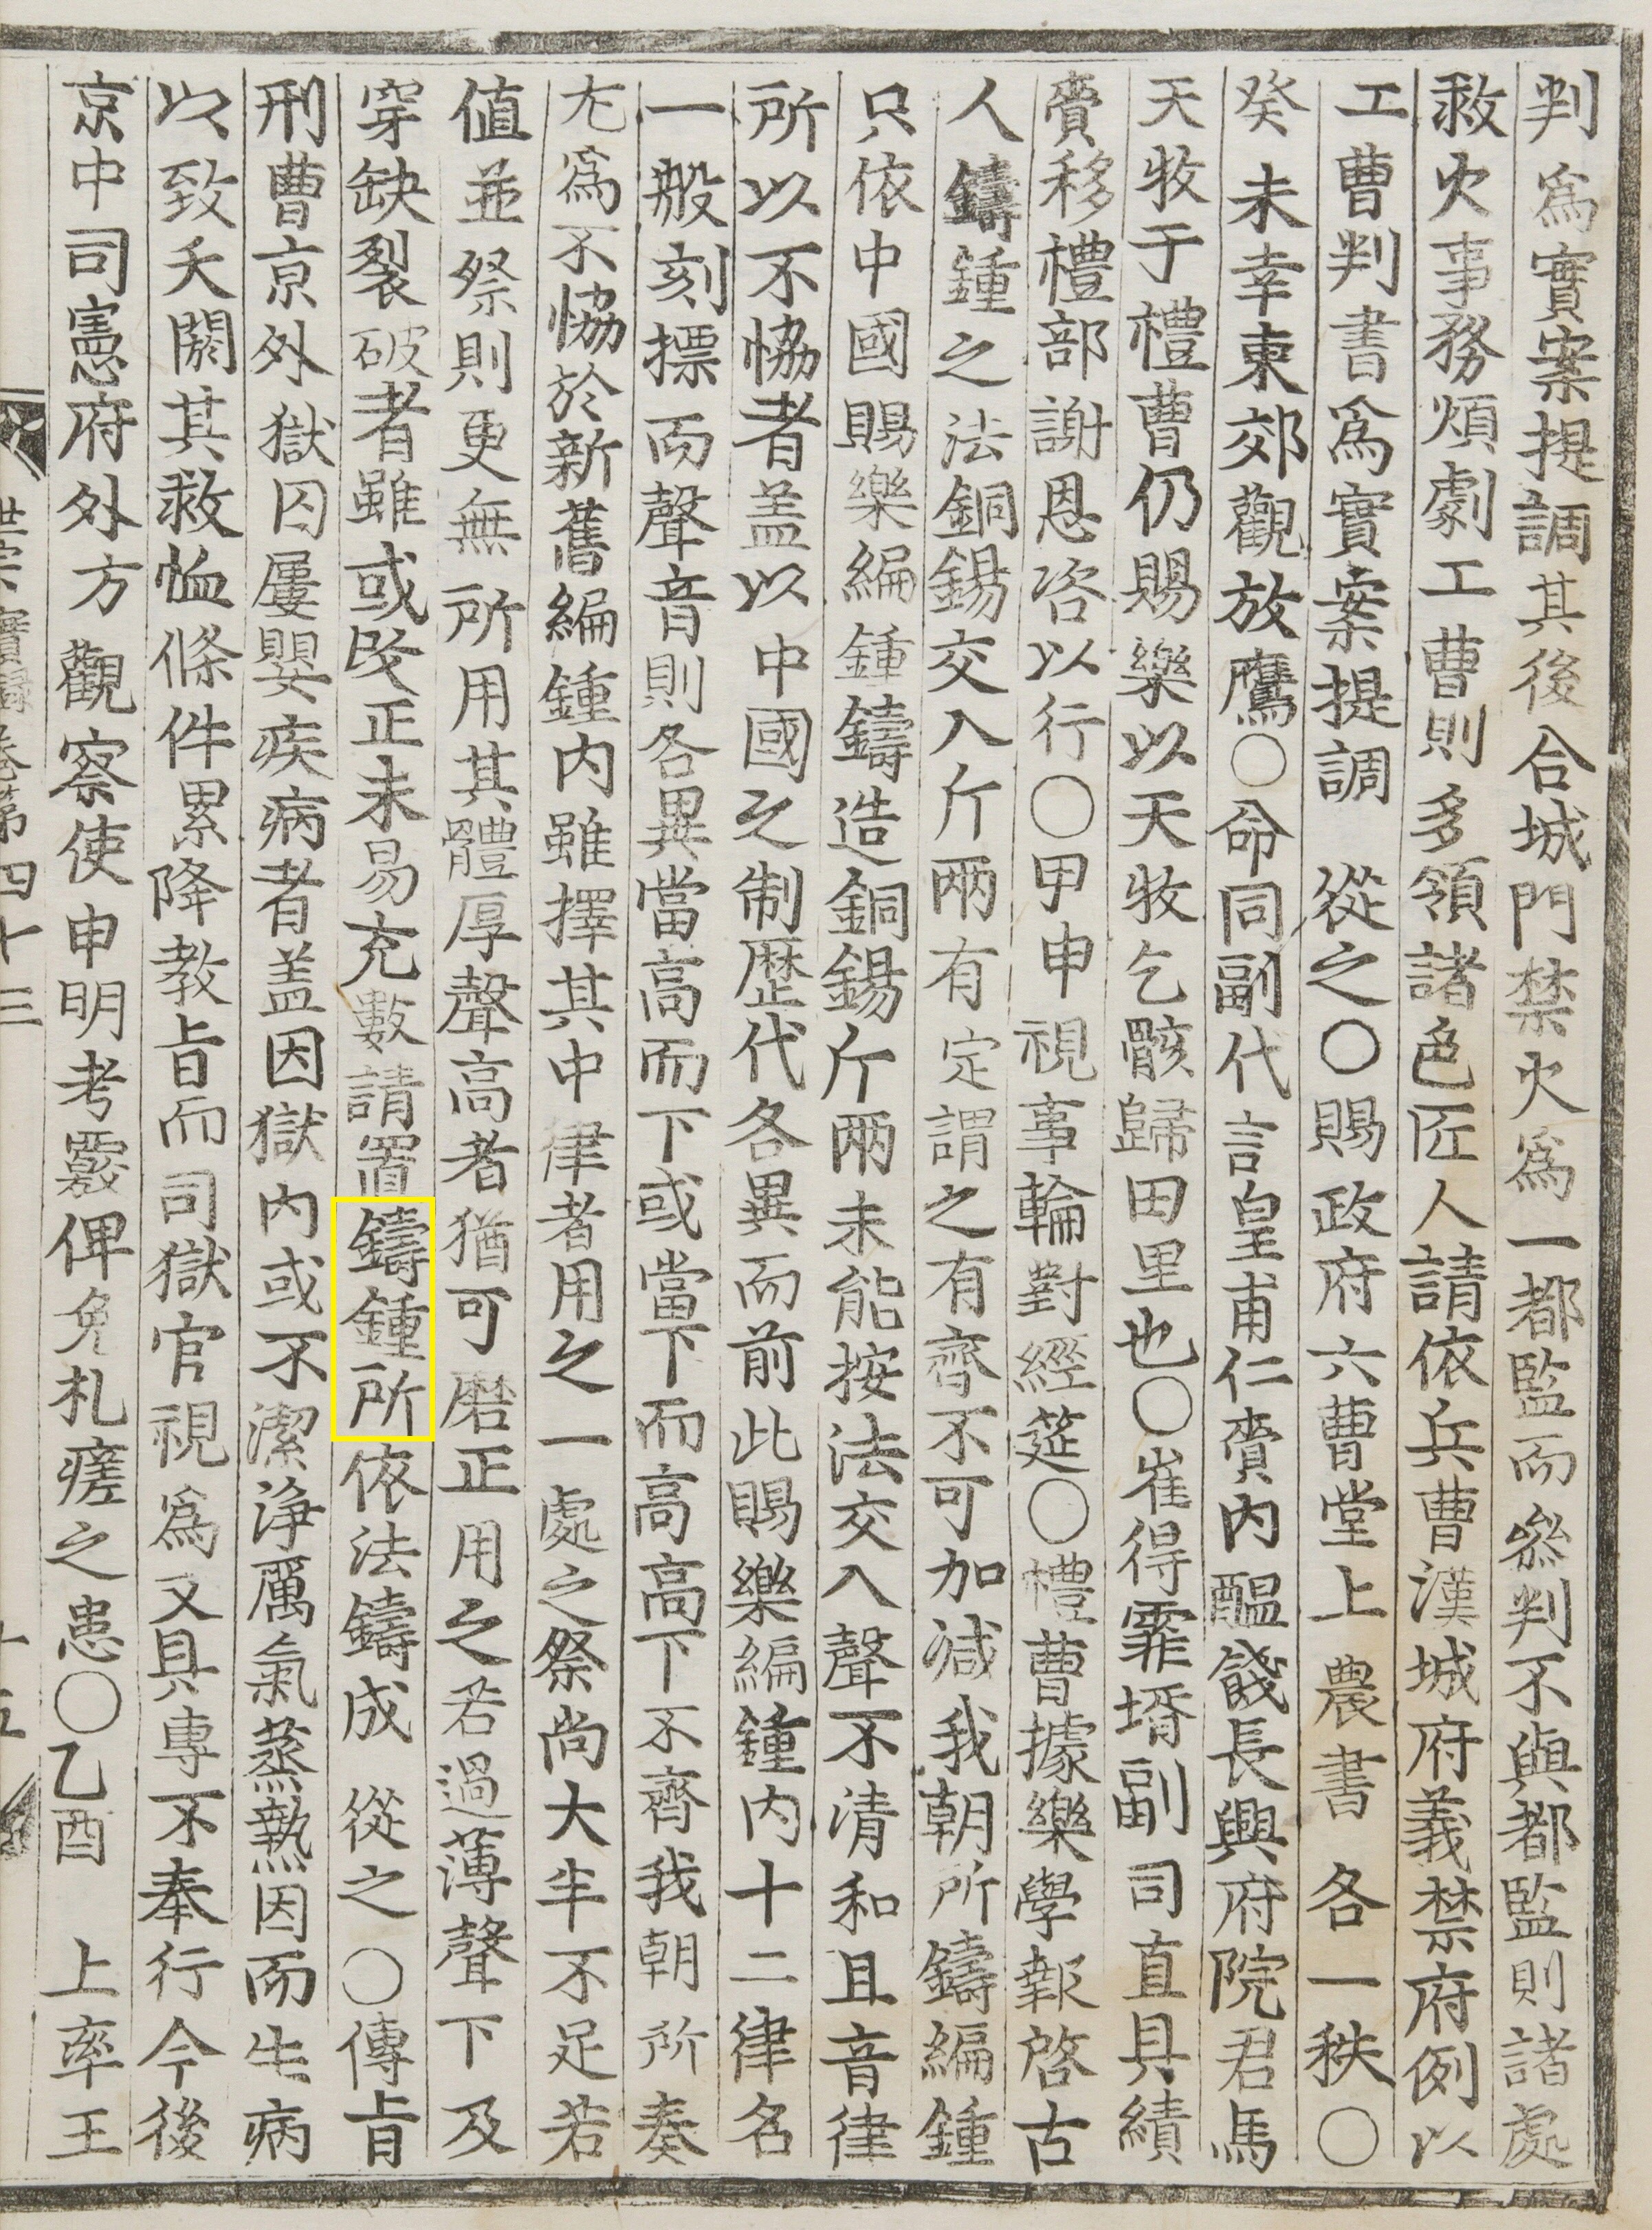 判爲實案提調其後合城門禁火爲一都監而叅判不與都監則諸處
救火事務煩劇工曹則多領諸色匠人請依兵曹漢城府義禁府例以
工曹判書爲實案提調 從之○賜政府六曹堂上農書各一秩○
癸未幸東郊觀放鷹○命同副代言皇甫仁賫內醞餞長興府院君馬
天牧于禮曹仍賜樂以天牧乞骸歸田里也○崔得霏壻副司直具績
賫移禮部謝恩咨以行○甲申視事輪對經筵○禮曹據樂學報啓古
人鑄鍾之法銅錫交入斤兩有定謂之有齊不可加減我朝所鑄編鍾
只依中國賜樂編鍾鑄造銅錫斤兩未能按法交入聲不淸和且音律
所以不恊者盖以中國之制歷代各異而前此賜樂編鍾內十二律名
一般刻標而聲音則各異當高而下或當下而高高下不齊我朝所奏
尤爲不恊於新舊編鍾內雖擇其中律者用之一處之祭尙大半不足若
值並祭則更無所用其體厚聲高者猶可磨正用之若過薄聲下及
穿缺裂破者雖或改正未易充數請置鑄鍾所依法鑄成 從之○傳旨
刑曹京外獄囚屢嬰疾病者盖因獄內或不潔淨厲氣蒸熱因而生病
以致夭閼其救恤條件累降敎旨而司獄官視爲文具專不奉行今後
京中司憲府外方觀察使申明考覈俾免札瘥之患○乙酉 上率王
世宗實錄卷第四十三 十五